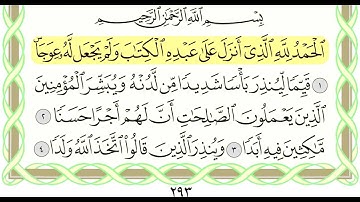 بِسْمِ ٱللَّهِ ٱلرَّحْمَٰنِ ٱلرَّحِيمِ
ٱلْحَمْدُ لِلَّهِ ٱلَّذِىٓ أَنزَلَ عَلَىٰ عَبْدِهِ ٱلْكِتَٰبَ وَلَمْ يَجْعَل لَّهُۥ عِوَجَاۜ
١ قَيِّمًا لِّيُنذِرَ بَأْسًا شَدِيدًا مِّن لَّدُنْهُ وَيُبَشِّرَ ٱلْمُؤْمِنِينَ
ٱلَّذِينَ يَعْمَلُونَ ٱلصَّٰلِحَٰتِ أَنَّ لَهُمْ أَجْرًا حَسَنًا ٢
مَّٰكِثِينَ فِيهِ أَبَدًا ٣ وَيُنذِرَ ٱلَّذِينَ قَالُوا۟ ٱتَّخَذَ ٱللَّهُ وَلَدًا ٤
٢٩٣